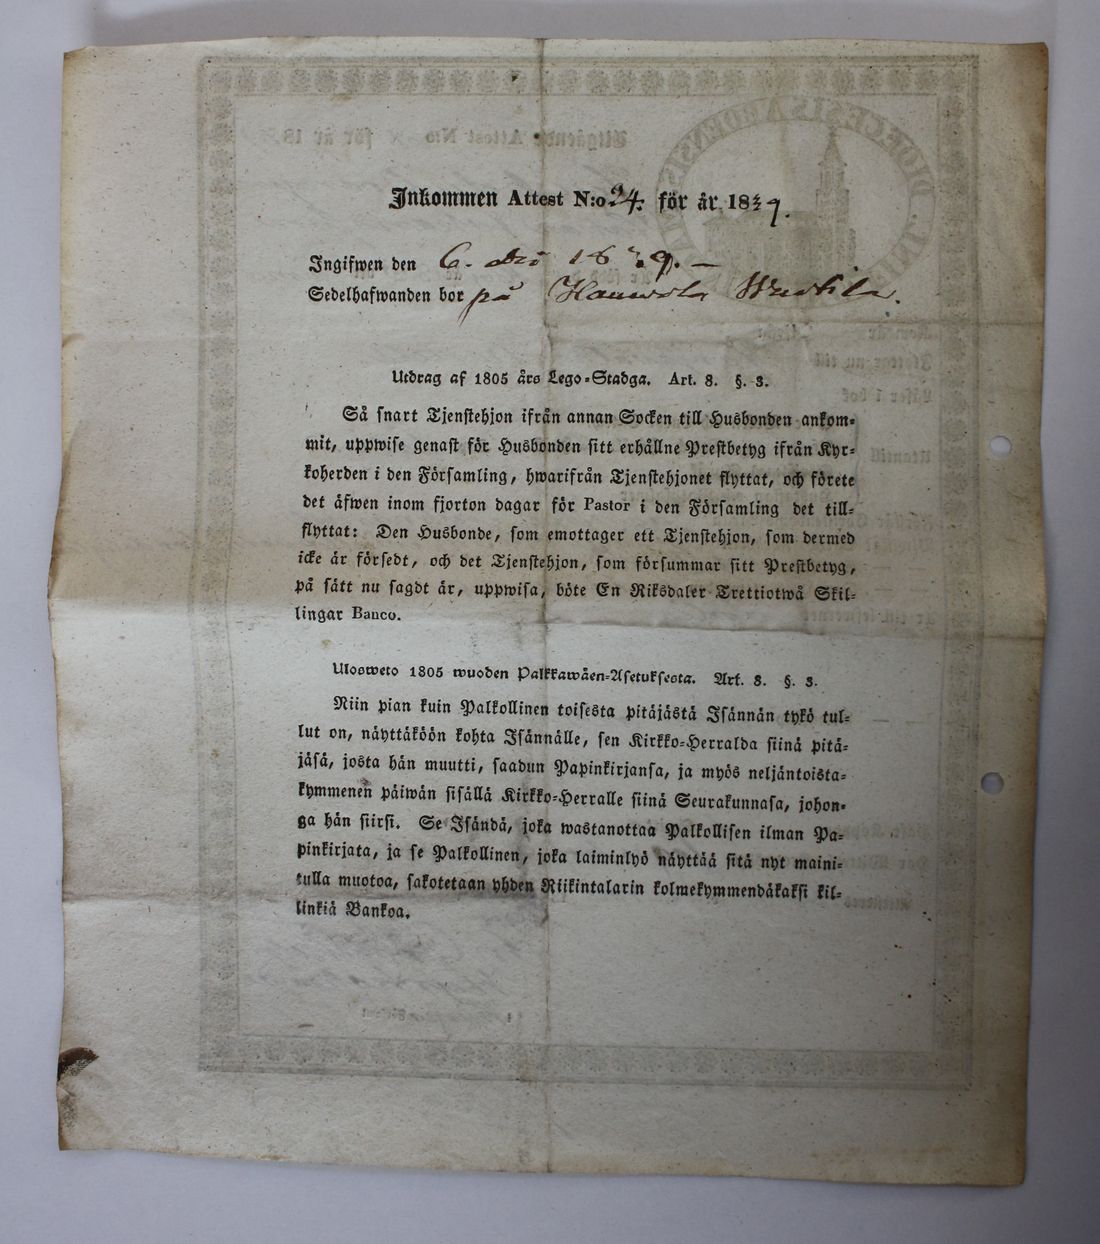 Inkommen Attest N:o 24. för år 1829.
Ingifwen den 6. 1829. —
Sedelhafwanden bor på
Utdrag af 1805 års Lego-Stadga. Art. 8. §. 3.
Så snart Tjenstehjon ifrån annan Socken till Husbonden ankom-
mit, uppwise genast för Husbonden sitt erhållne Prestbetyg ifrån Kyr-
koherden i den Församling, hwarifrån Tjenstehjonet flyttat, och förete
det äfwen inom fjorton dagar för Pastor i den Församling det till-
flyttat: Den Husbonde, som emottager ett Tjenstehjon, som dermed
icke är försedt, och det Tjenstehjon, som försummar sitt Prestbetyg,
på sätt nu sagdt är, uppwisa, böte En Riksdaler Trettiotwå Skil-
lingar Banco.
Ulosweto 1805 wuoden Palkkawäen-Asetuksesta. Art. 8. §. 3.
Niin pian kuin Palkollinen toisesta pitäjästä Isännän tykö tul-
lut on, näyttäköön kohta Isännälle, sen Kirkko-Herralda siinä pitä-
jäsä, josta hän muutti, saadun Papinkirjansa, ja myös neljäntoista-
kymmenen päiwän sisällä Kirkko-Herralle siinä Seurakunnasa, johon-
ga hän siirsi. Se Isändä, joka wastanottaa Palkollisen ilman Pa-
pinkirjata, ja se Palkollinen, joka laiminlyö näyttää sitä nyt maini-
tulla muotoa, sakotetaan yhden Riikintalarin kolmekymmendäkaksi kil-
linkiä Bankoa.